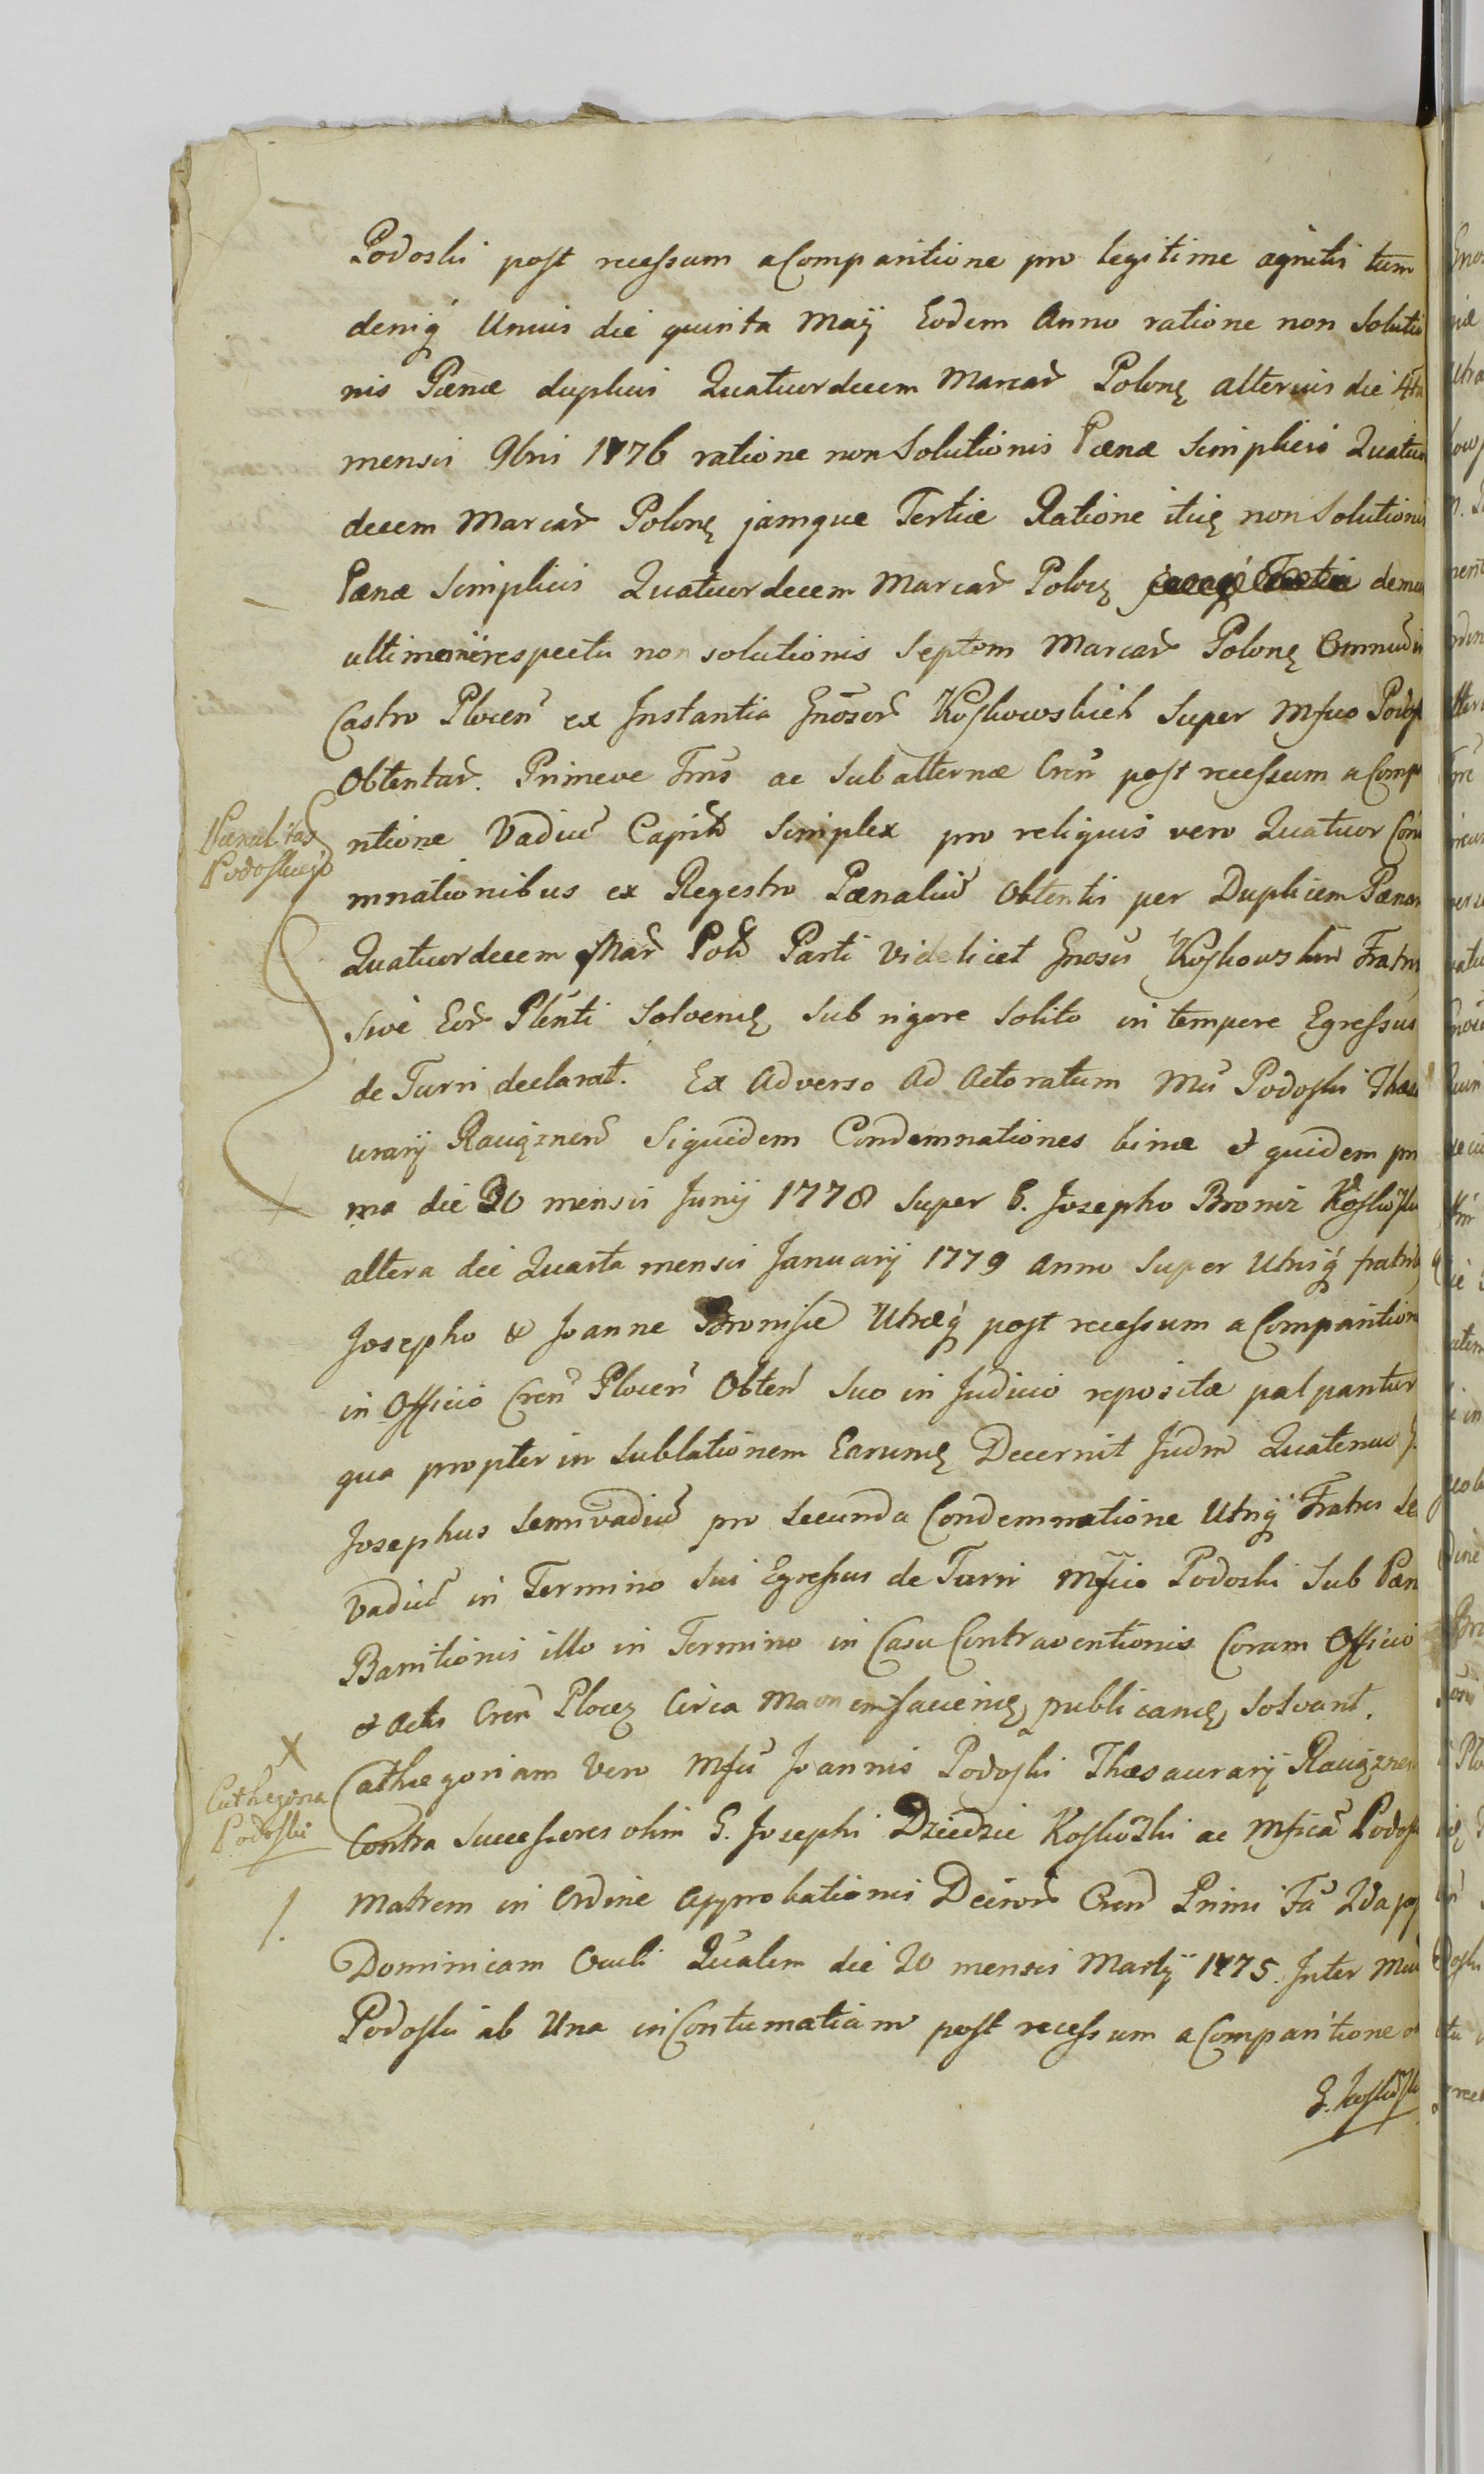 Podoski post recessum a Comparitione pro legitime agnitis tum
deniq́ Unius die quinta Maÿ Eodem Anno ratione non Solutio
nis Pænæ duplicis Quatuordecem Marcar̃ Polonę alterius die 4ta
mensis 9bris 1776 ratione non Solutionis Pænæ Simplicis Quatuor
decem Marcar̃ Polonę jamque Tertiæ Ratione itię non Solutionis
Pænæ Simplicis Quatuordecem Marcar̃ Polocę demum
respectu non solutionis Septem Marcar̃ Polonę Omnium in
Castro Plocen̄ ex Instantia Gnõsor̃ Koskowskich Super Mfco Podos
Obtentar̃. Primeve Tms̄ ac Subalternæ Cren̄ post recessum a Comp
ritione Vadiū Capitis Simplex pro reliquis vero Quatuor Con
mnationibus ex Regestro Pænaliū Obtentis per Duplicem Pænam
Quatuordecem Mar̃ Pol̃ Parti videlicet Gnosis Koskowskim Fratrib
Sivè Eor̃ Plenti Solvenię Sub rigore Solito in tempore Egressus
de Turri declarat. Ex Adverso Ad Actoratum Mci Podoski Thesa
urarij Raugznen̄ Siquidem Condemnationes binæ & quidem pri
ma die 30 mensis Junij 1778 Super G. Josepho Broniz Koskowski
altera die Quarta mensis Januarij 1779 anno Super Utrisq́ fratrib
Josepho & Joanne Bronisie Utræq́ post recessum a Comparitione
in Officio Cren̄ Plocen̄ Obten̄ Suo in Judicio repositæ palpantur
qua propter in Sublationem Earumę Decernit Judm Quatenus G.
Josephus Semivadiū pro Secunda Condemnatione Utrię Fratres Se
vadiū in Termino Sui Egressus de Turri Mfico Podoski Sub Pæn
Banitionis illo in Termino in Casu Contraventionis Coram Officio
& Actis Cren̄ Plocę Circa Manem faucinę publicanę Solvant.
Cathegoriam Vero Mfci Joannis Podoski Thesaurarij Raugznen̄
Contra Successores olim G. Josephi Dziedzic Koskowski ac Mficã Podos
Matrem in Ordine Approbationis Decreti Cren̄ Primi Fa 2da post
Dominicam Oculi Qualem die 20 mensis Martij 1775. Inter Mcū
Podoski ab Una in Contumatiam post recessum a Comparitione
G. Koskowski
Pænalitas
Podoskiego
X
Cathegoria
Podoski
1.